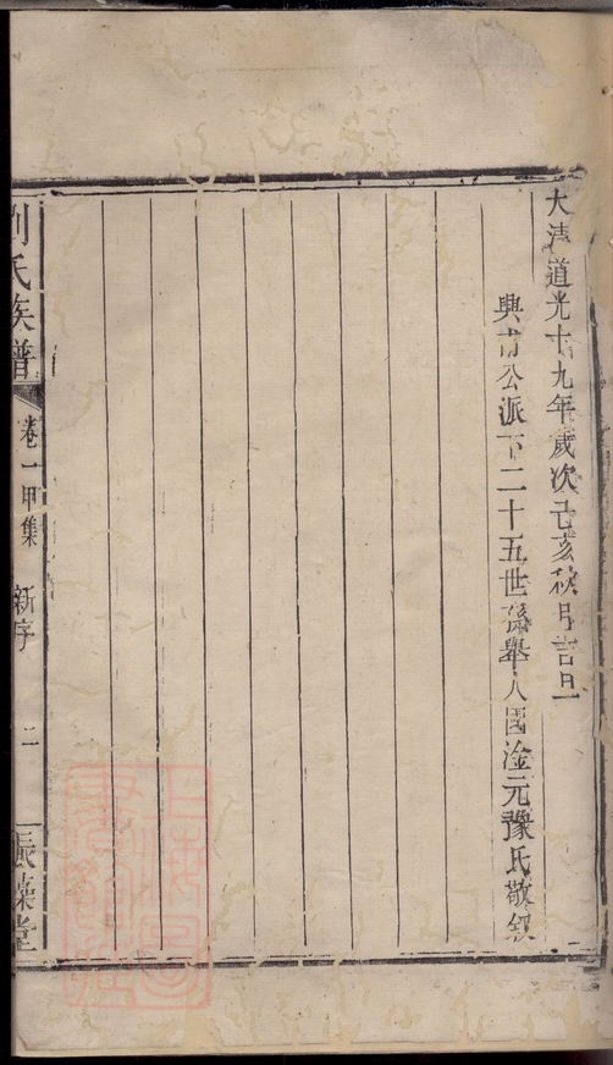 大清道光十九年歲次己亥秋月吉旦
興甫公派下二十五世孫舉人國淦元豫氏敬叙
劉氏族譜
卷一甲集
新序
二
振藻堂